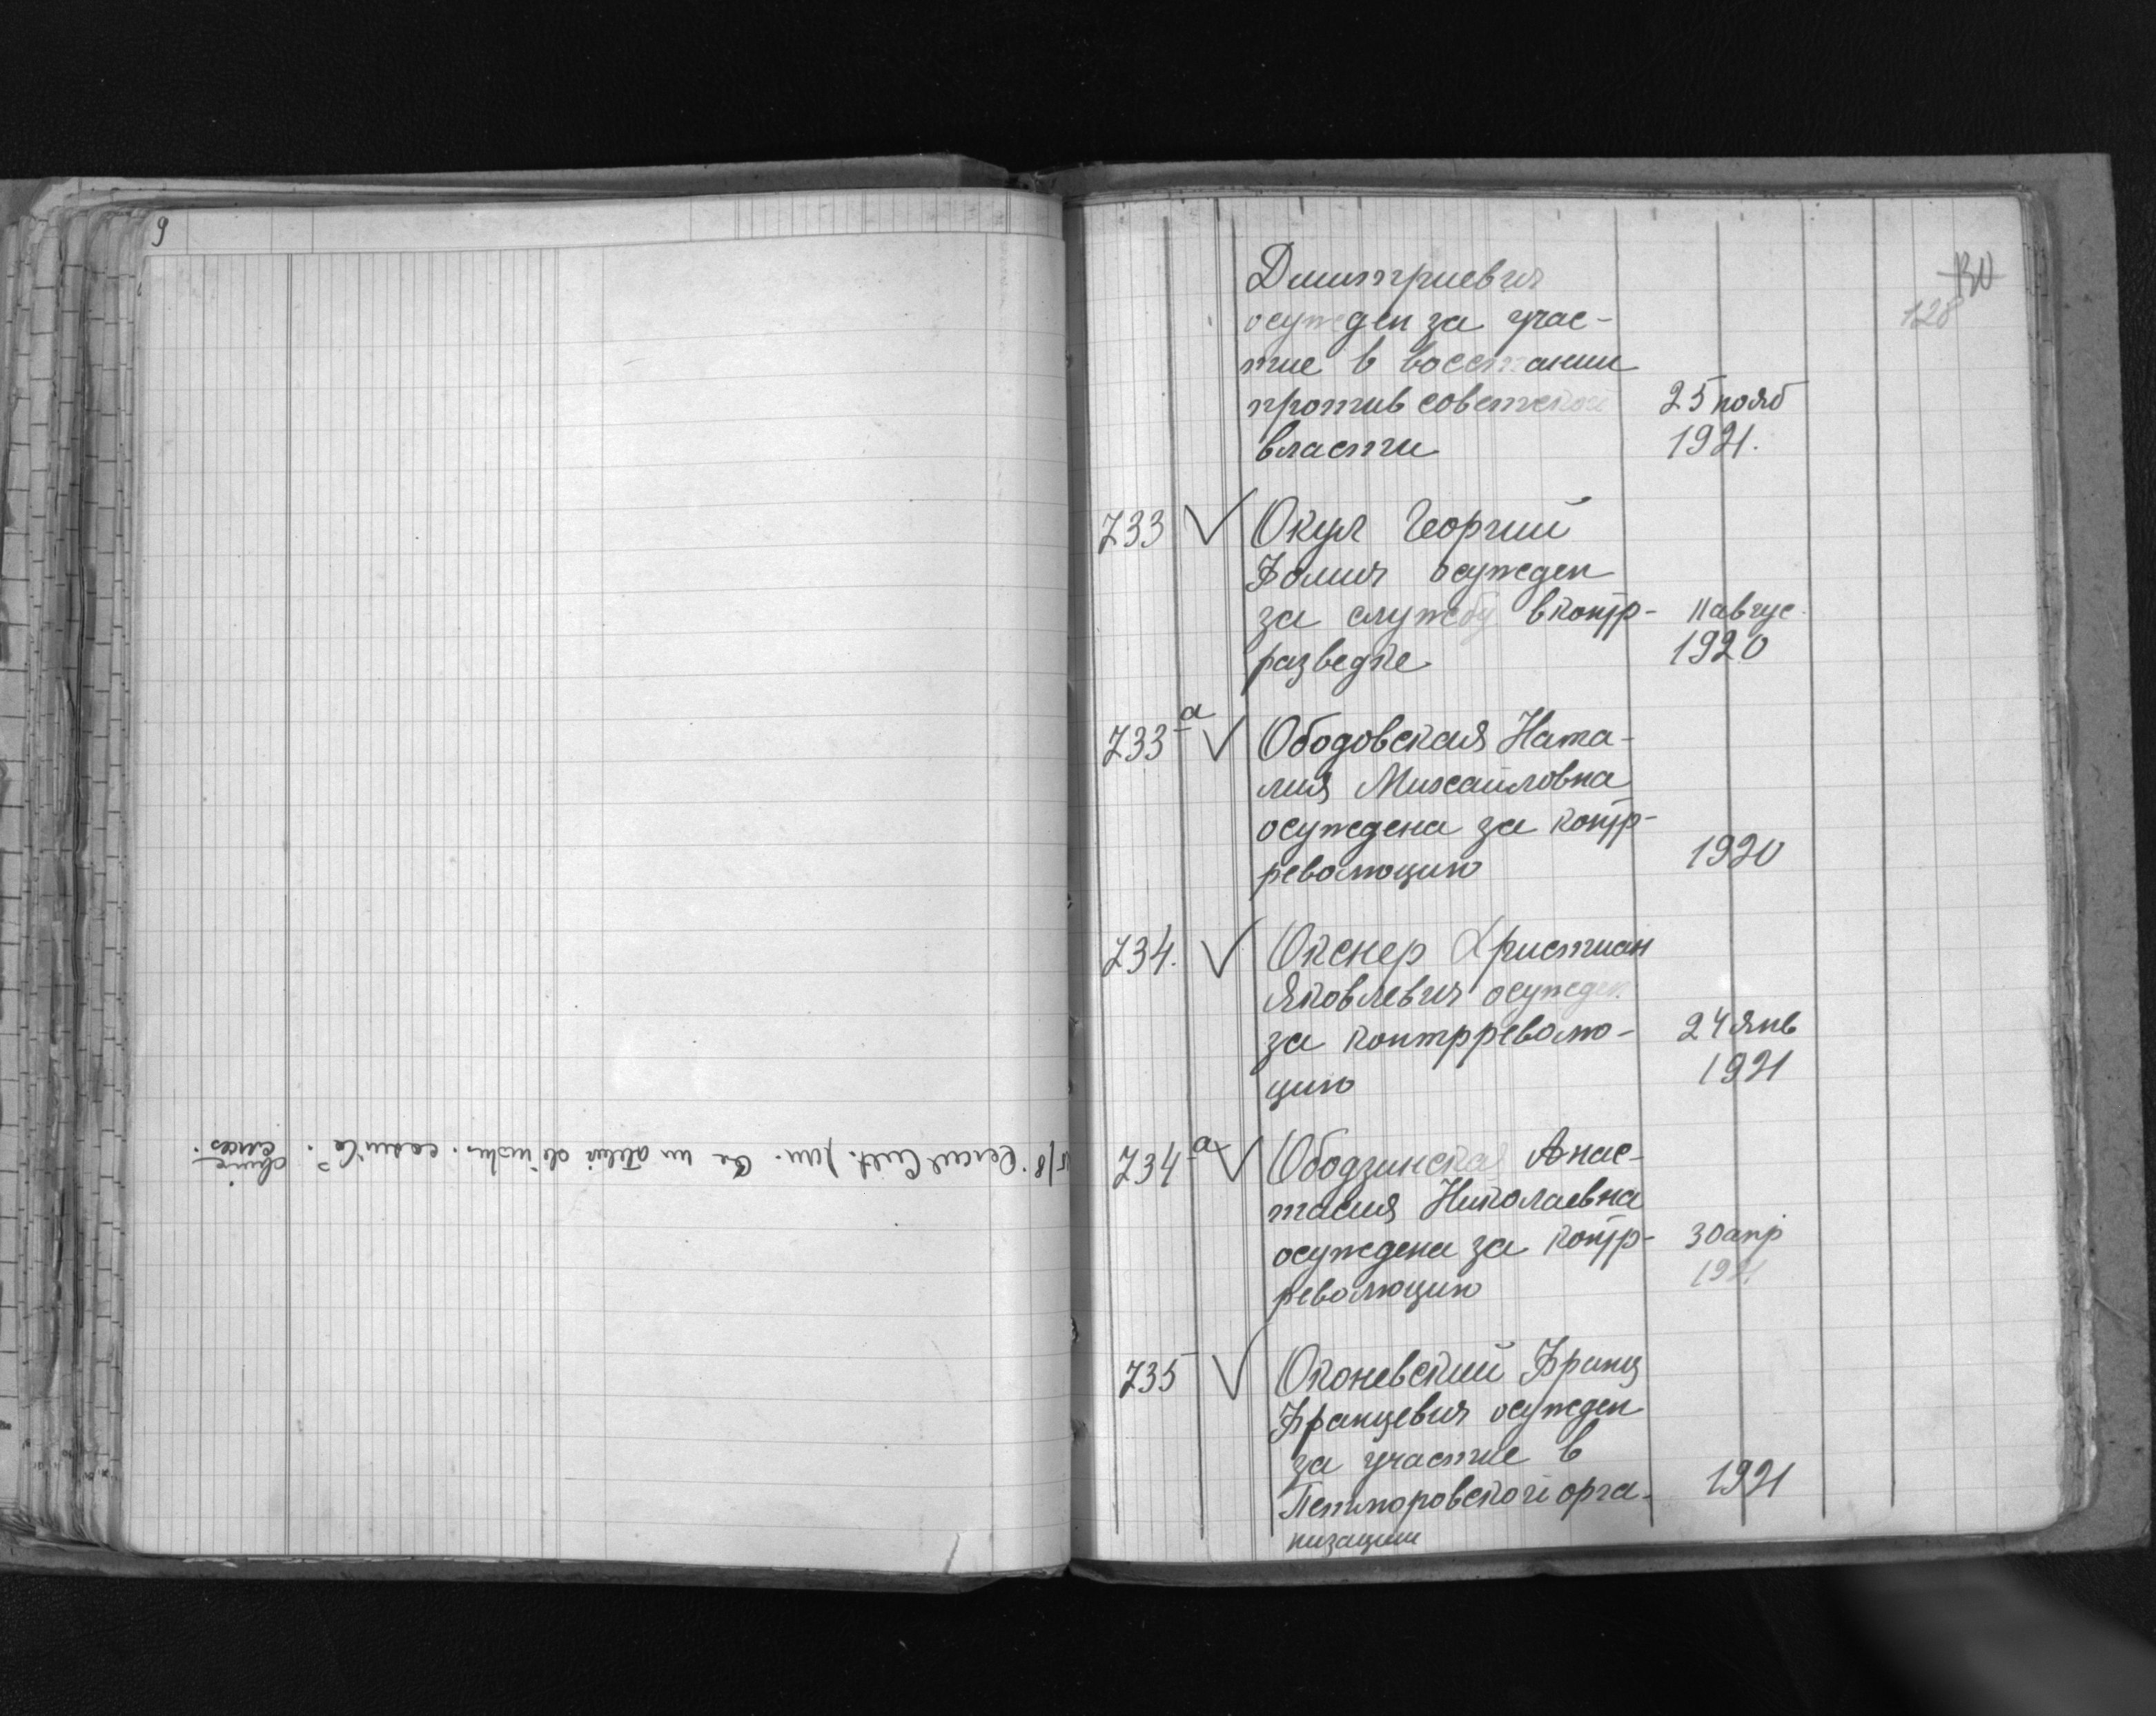 9
130
128
Дмитриевич
осужден за учас-
тие в восстании
против советской 25 нояб
власти 1921.
733 √ Окул Георгий
Фомич осужден
за службу в контр- 11 авгус.
разведке 1920
733а √ Ободовская Ната-
лия Михайловна
осуждена за контр-
революцию 1920
734. √ Окснер Христиан
Яковлевич осужден
за контрреволю- 24 янв
цию 1921
734а √ Ободзинская Анас-
тасия Николаевна
осуждена за контр- 30 апр
революцию 1921
735 √ Оконевский Франц
Францевич осужден
за участие в
Петлюровской орга- 1921
низации